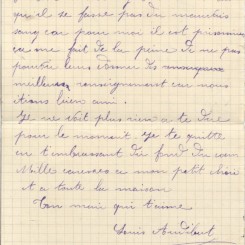 qu'il se fasse pas du mauvais
sang car pour moi il est prisonnier
ca me fait de la peine de ne pas
pouvoir leurs donner les
meilleurs renseignement car nous
étions bien ami.
Je ne voit plus rien a te dire
pour le moment. je te quitte
en t'embrassant du fond du cœur
Mille caresses a mon petit
et a toute la maison
Ton mari qui t'aime
Louis Audibert